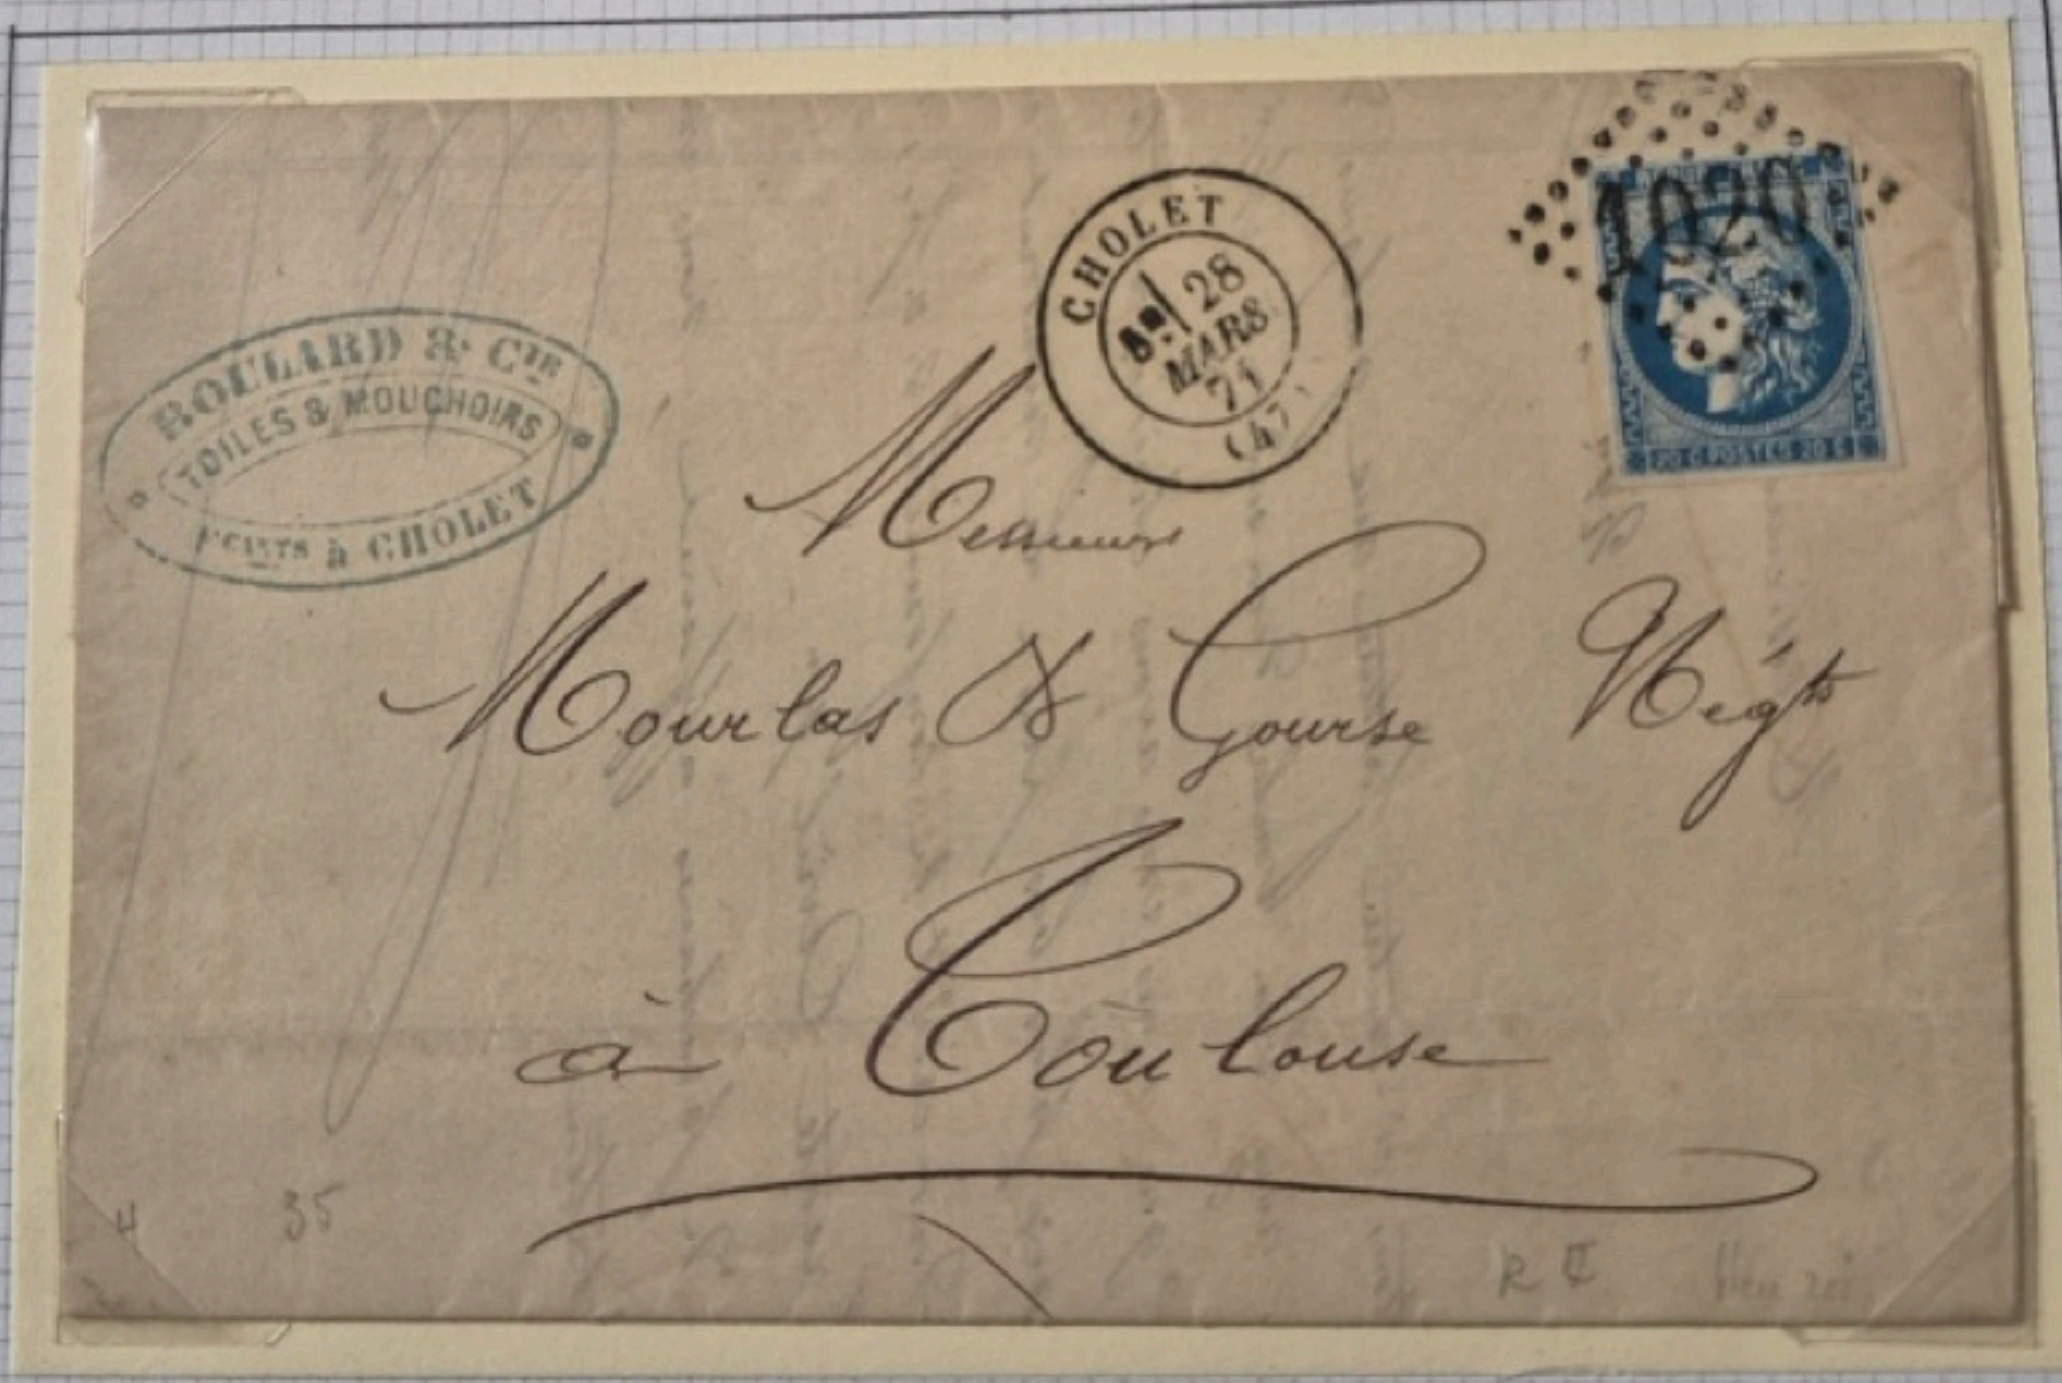 BOULARD & CIE
TOILES & MOUCHOIRS
à CHOLET
CHOLET
28
MARS
71
(47)
1020
20 C POSTES 20 C
Messieurs
Mourlas & Gourse Négts
à Toulouse
35